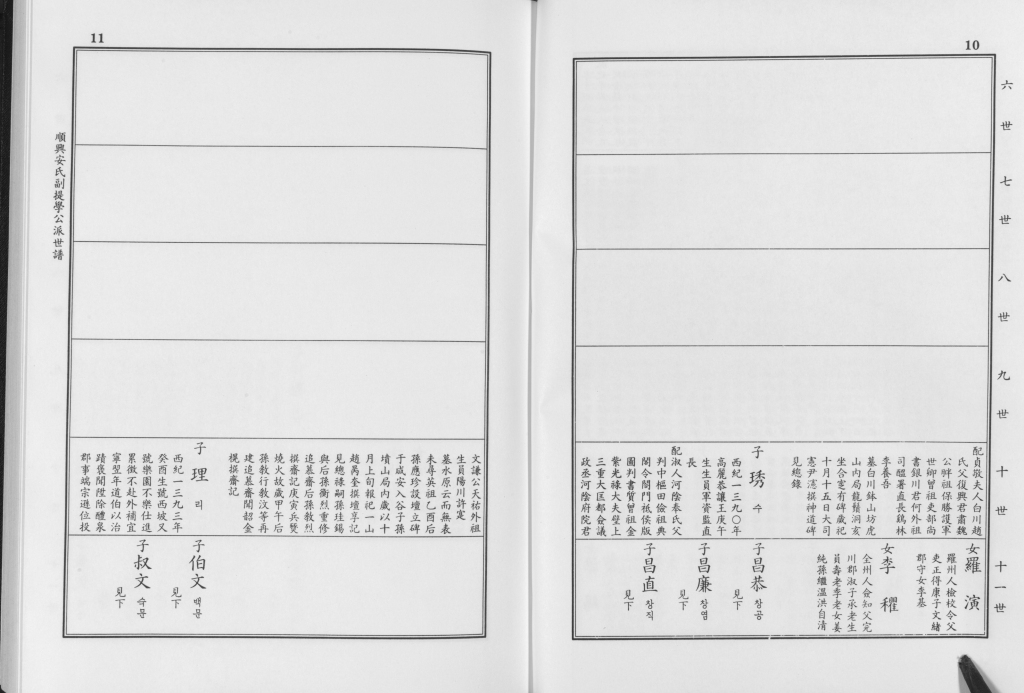 10
六世
七世
八世
九世
十世
十一世
配貞敬夫人白川趙
氏父復興君肅魏
公胖祖保勝護軍
世卿曾祖吏部尚
書銀川君何外祖
司醞署直長鷄林
李養吾
墓白川鉢山坊虎
山內局龍鬚洞亥
坐合窆有碑歲祀
十月十五日大司
憲尹憲撰神道碑
見總錄
子琇수
西紀一三九〇年
高麗恭讓王庚午
生生員軍資監直
長
配淑人河陰奉氏父
判中樞田儉祖典
閣令閤門祗侯版
圖判書質曾祖金
紫光祿大夫壁上
三重大匡都僉議
政丞河陰府院君
女羅演
羅州人檢校令父
吏正得康子文緖
郡守女李基
女李穲
全州人僉知父完
川郡淑子承老生
員壽老季老女姜
純孫繼溫洪自淸
子昌恭창공
見下
子昌廉창염
見下
子昌直창직
見下
11
文謙公天祐外祖
生員陽川許寔
墓水原云而無表
未尋英祖乙酉后
孫應珍設壇立碑
于咸安入谷子孫
墳山局內歲以十
月上旬報祀一山
趙昺奎撰壇享記
見總祿嗣孫珪錫
與后孫衡烈重修
追慕齋后孫敎烈
撰齋記庚寅兵燹
燒火故歲甲午后
孫敎行敎汶等再
建追慕齋聞韶金
榥撰齋記
子理리
西紀一三九三年
癸酉生號西坡又
號樂園不樂仕進
累徵不赴外補宜
寧翌年道伯以治
蹟褒聞陞除醴泉
郡事端宗遜位投
子伯文백문
見下
子叔文숙문
見下
順興安氏副提學公派世譜